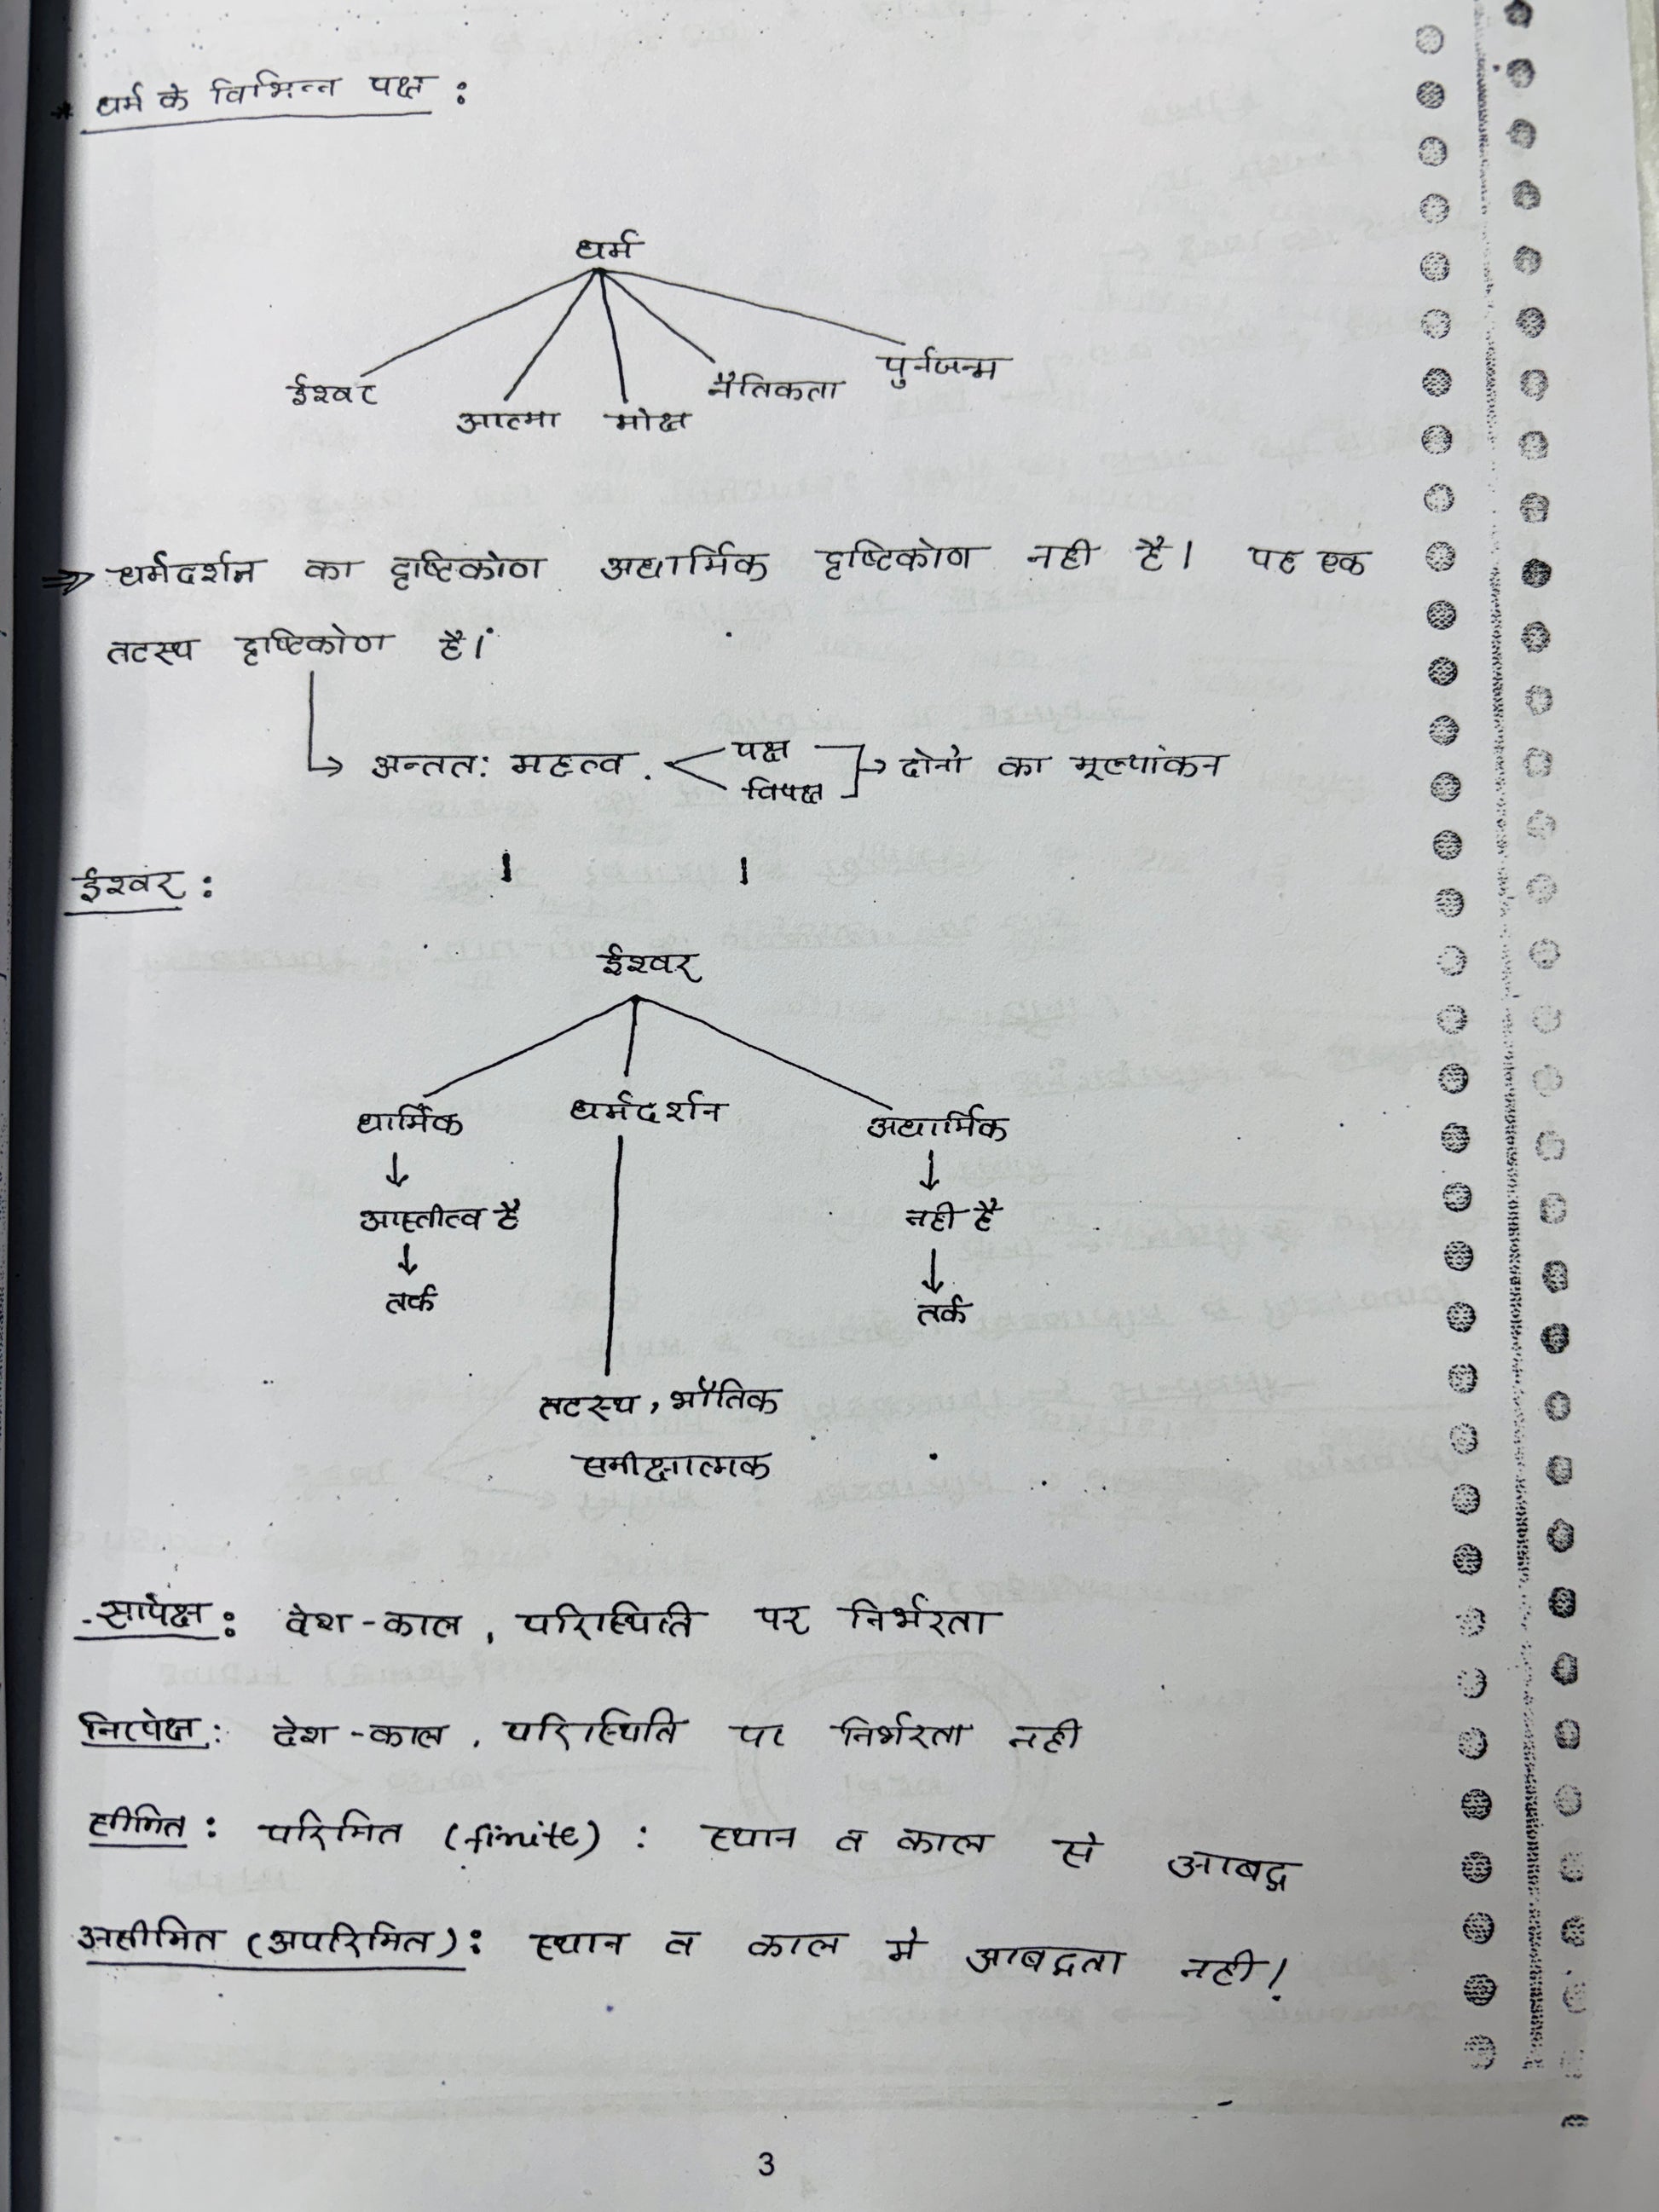 * धर्म के विभिन्न पक्ष :
धर्म
ईश्वर आत्मा मोक्ष नैतिकता पुर्नजन्म
⇒ धर्मदर्शन का दृष्टिकोण अधार्मिक दृष्टिकोण नही है। यह एक
तटस्थ दृष्टिकोण है।
↳ अन्ततः महत्व . < पक्ष विपक्ष ] → दोनो का मूल्यांकन
ईश्वर :
ईश्वर
धार्मिक धर्मदर्शन अधार्मिक
↓ ↓
आस्तीत्व है नही है
↓ ↓
तर्क तर्क
तटस्थ, भौतिक
समीक्षात्मक
सापेक्ष : देश-काल, परिस्थिति पर निर्भरता
निरपेक्ष : देश-काल, परिस्थिति पर निर्भरता नही
सीमित : परिमित (finite) : स्थान व काल से आबद्ध
असीमित (अपरिमित) : स्थान व काल मे आबद्धता नही।
3